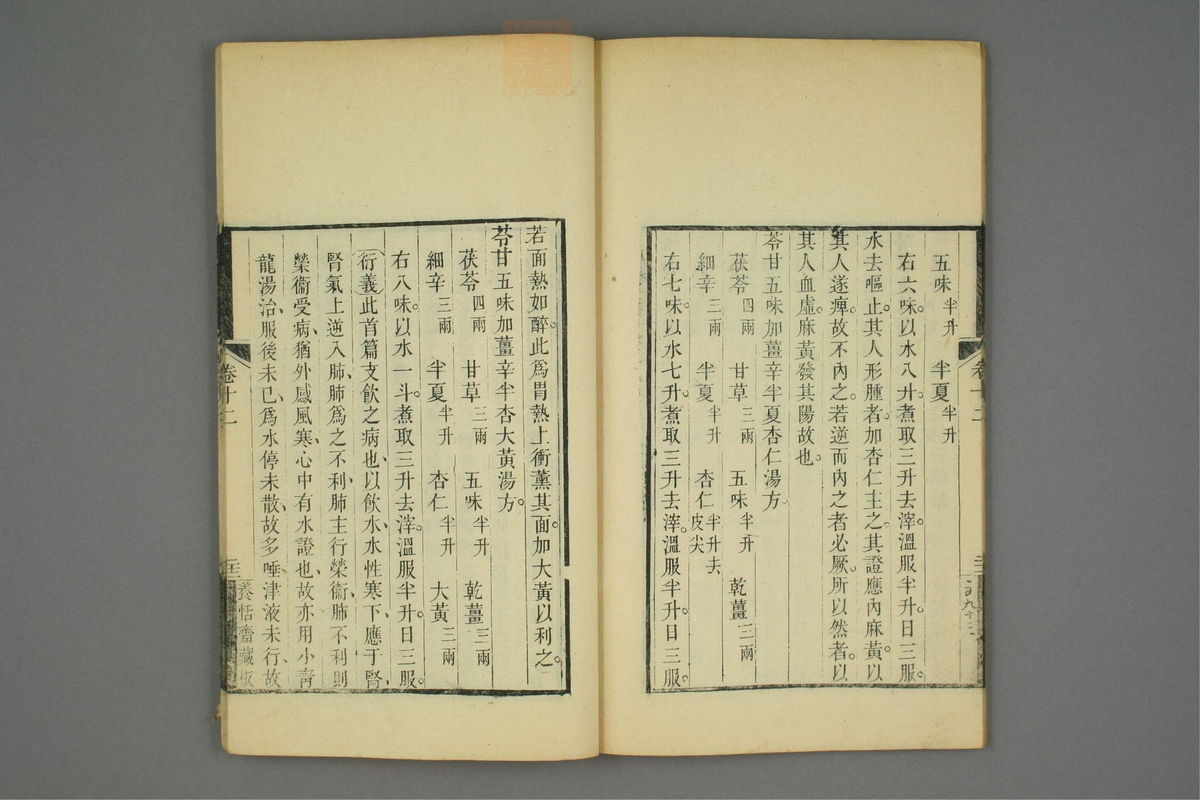 五味半升 半夏半升
右六味。以水八升。煮取三升去滓。溫服半升。日三服。
水去嘔止。其人形腫者。加杏仁主之。其證應內麻黃。以
其人遂痺。故不內之。若逆而內之者必厥。所以然者。以
其人血虛。麻黃發其陽故也。
苓甘五味加薑辛半夏杏仁湯方。
茯苓四兩 甘草三兩 五味半升 乾薑三兩
細辛三兩 半夏半升 杏仁半升去皮尖
右七味。以水七升。煮取三升去滓。溫服半升。日三服。
卷十二
若面熱如醉。此爲胃熱上衝薰其面。加大黃以利之。
苓甘五味加薑辛半杏大黃湯方。
茯苓四兩 甘草三兩 五味半升 乾薑三兩
細辛三兩 半夏半升 杏仁半升 大黃三兩
右八味。以水一斗。煮取三升去滓。溫服半升。日三服。
衍義此首篇支飲之病也、以飲水、水性寒下、應于腎、
腎氣上逆入肺、肺爲之不利、肺主行榮衞、肺不利則
榮衞受病、猶外感風寒、心中有水證也、故亦用小青
龍湯治、服後未已、爲水停未散、故多唾、津液未行、故
卷十二
養恬齋藏板